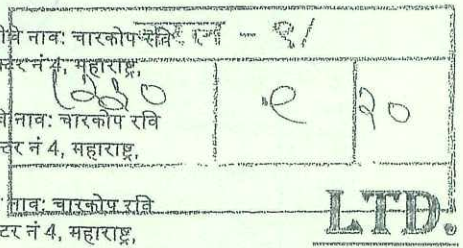 चे नाव: चारकोप रवि
टर नं 4, महाराष्ट्र,
९ २०
चे नाव: चारकोप रवि
टर नं 4, महाराष्ट्र,
नाव: चारकोप रवि
LTD.
टर नं 4, महाराष्ट्र,